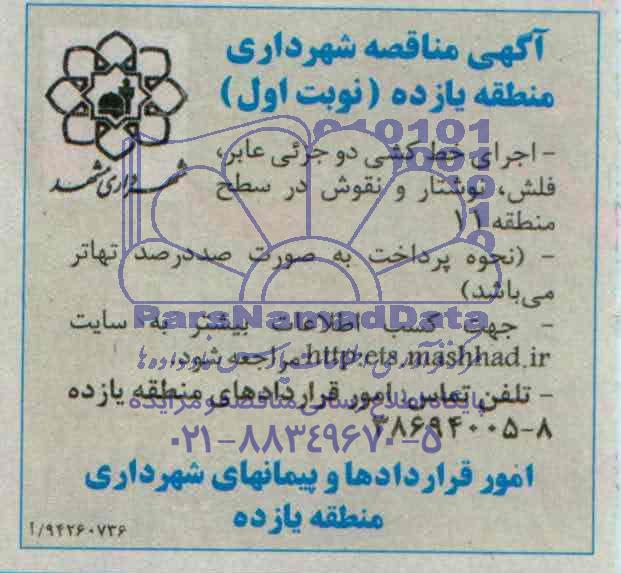 آگهی مناقصه شهرداری
منطقه یازده (نوبت اول)
شهرداری مشهد
- اجرای خط کشی دو جزئی عابر،
فلش، نوشتار و نقوش در سطح
منطقه ۱۱
- (نحوه پرداخت به صورت صددرصد تهاتر
می‌باشد)
ParsNamadData
- جهت کسب اطلاعات بیشتر به سایت
http:ets.mashhad.ir مراجعه شود.
- تلفن تماس: امور قراردادهای منطقه یازده
۳۸۶۹۴۰۰۵-۸
۰۲۱-۸۸۳۴۹۶۷۰-۵
امور قراردادها و پیمانهای شهرداری
منطقه یازده
۹۴۲۶۰۷۳۶/آ